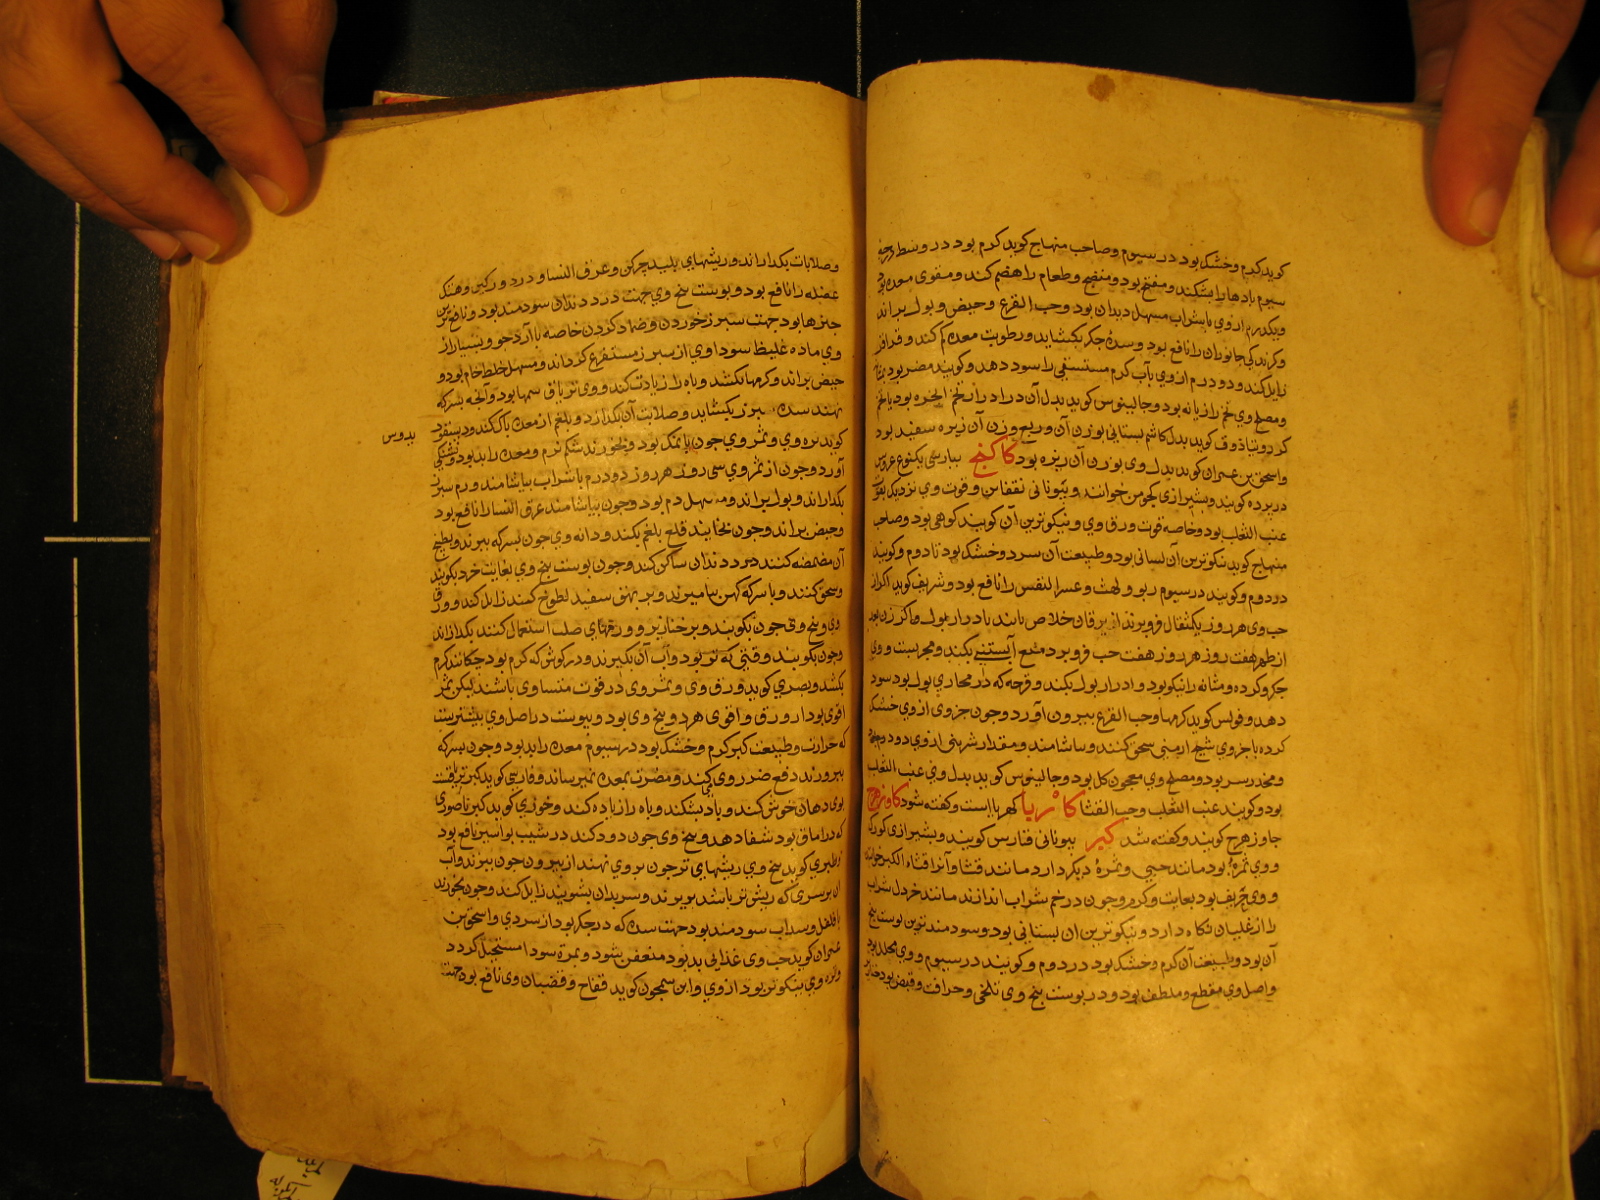 کوید کرم و خشک بود در سیوم و صاحب منهاج کوید کرم بود در وسط درجه
سیوم بادها را بشکند و مفتح بود و منضج و طعام را هضم کند و مقوی معده بود
و یکدرم از وی با شراب مسهل دیدان بود و حب القرع و حیض و بول براند
و کزیدکی جانوران را نافع بود و سده جکر بکشاید و رطوبت معده کم کند و قراقر
زایل کند و دو درم از وی باب کرم مستسقی را سود دهد و کویند مضر بود
و مصلح وی تخم رازیانه بود و جالینوس کوید بدل آن در ادرار تخم انجره بود یا تخم
کرد و نیاذوق کوید بدل کاشم بستانی بوزن آن و ربع وزن آن زیره سفید بود
و اسحق بن عمران کوید بدل وی بوزن آن زیره بود کاکنج بپارسی یکنوع عروس
در پرده کویند و بشیرازی کجومن خوانند و بیونانی نقفاس و قوت وی نزدیک بقوت
عنب الثعلب بود و خاصه قوت ورق وی و نیکوترین آن کویند کوهی بود و صاحب
منهاج کوید نیکوترین آن بستانی بود و طبیعت آن سرد و خشک بود تا دوم و کویند
در دوم و کویند در سیوم ربو و لهث و عسر النفس را نافع بود و شریف کوید اکر از
حب وی هر روز یکمثقال فرو برند از یرقان خلاص یابند با ادرار بول و اکر زن بعد
از طهر هفت روز هر روز هفت حب فرو برد منع آبستنی بکند و مجربست و وی
جکر و کرده و مثانه را نیکو بود و ادرار بول بکند و قرحه که در مجاری بول بود سود
دهد و فولس کوید کرمها و حب القرع بیرون آورد و چون جزوی از وی خشک
کرده با جزوی شیح ارمنی سحق کنند و بیاشامند و مقدار شربتی از وی دو درم بود
و مخدر سر بود و مصلح وی معجون کل بود و جالینوس کوید بدل وی عنب الثعلب
بود و کویند عنب الثعلب و حب القثا کاربا کهرباست و کفته شود کاوزهرج
جاوزهرج کویند و کفته شد کبر بیونانی قنارس کویند و بشیرازی کورک
و وی ثمره بود مانند حبی و ثمره دیکر دارد مانند قثا و آنرا قثاء الکبر خوانند
و وی حریف بود بغایت و کرم و چون در خم شراب اندازند مانند خردل شراب
را از غلیان نکاه دارد و نیکوترین آن بستانی بود و سودمندترین پوست بیخ
آن بود و طبیعت آن کرم و خشک بود در دوم و کویند در سیوم و وی محلل بود
و اصل وی مقطع و ملطف بود و در پوست بیخ وی تلخی و حرافت و قبض بود
و صلابات بکدازاند و ریشهای پلید چرکن و عرق النسا و درد ورکین و هتک
عضله را نافع بود و پوست بیخ وی جهت درد دندان سودمند بود و نافع ترین
چیزها بود جهت سپرز خوردن و ضماد کردن خاصه با آرد جو و بسیار از
وی ماده غلیظ سوداوی از سپرز مستفرغ کرداند و مسهل خلط خام بود و
حیض براند و کرمها بکشد و باه را زیادت کند و وی تریاق سمها بود و آنچه بسرکه
نهند سده سپرز بکشاید و صلابت آن بکدازد و بلغم از معده پاک کند
بدوس
کوید بره وی و ثمر وی چون با نمک بود و بخورند شکم نرم و معده را بد بود و تشنکی
آورد و چون از ثمر وی سی روز هر روز دو درم با شراب بیاشامند ورم سپرز
بکدازاند و بول براند و مسهل دم بود و چون بیاشامند عرق النسا را نافع بود
و حیض براند و چون بخایند قلع بلغم بکند و دانه وی چون بسرکه بپزند و بطبیخ
آن مضمضه کنند درد دندان ساکن کند و چون پوست بیخ وی بغایت خرد بکوبند
و سحق کنند و با سرکه کهن بیامیزند و بر بهق سفید لطوخ کنند زایل کند و ورق
وی و بیخ وی چون بکوبند و بر خنازیر و ورمهای صلب استعمال کنند بکدازاند
و چون بکوبند وقتی که تر بود و آب آن بکیرند و در کوش که کرم بود چکانند کرم
بکشد و بصری کوید ورق وی و ثمر وی در قوت متساوی باشند لیکن ثمر
اقوی بود از ورق و اقوی هر دو بیخ وی بود و یبوست در اصل وی بیشترست
که حرارت و طبیعت کبر کرم و خشک بود در سیوم معده را بد بود و چون بسرکه
بپرورند دفع ضرر وی کند و مضرت بمعده نمیرساند و فارسی کوید کبر تریاقست
بوی دهان خوش کند و باد بشکند و باه را زیاده کند و خوزی کوید کبر ناصوری
که در اماق بود شفا دهد و بیخ وی چون دود کند در شیب بواسیر نافع بود
و طبری کوید بیخ وی ریشهای تر چون بر وی نهند از بیرون چون بپزند و آب
آن بر سری که ریش تر باشد بریزند و سر بدان بشویند زایل کند و چون بخورند
با فلفل و سداب سودمند بود جهت سده که در جکر بود از سردی و اسحق بن
عمران کوید حب وی غذایی بد بود متعفن بشود و بمره سودا مستحیل کردد
و بره وی نیکوتر بود از وی و ابن سمجون کوید فقاح و قضبان وی نافع بود جهت